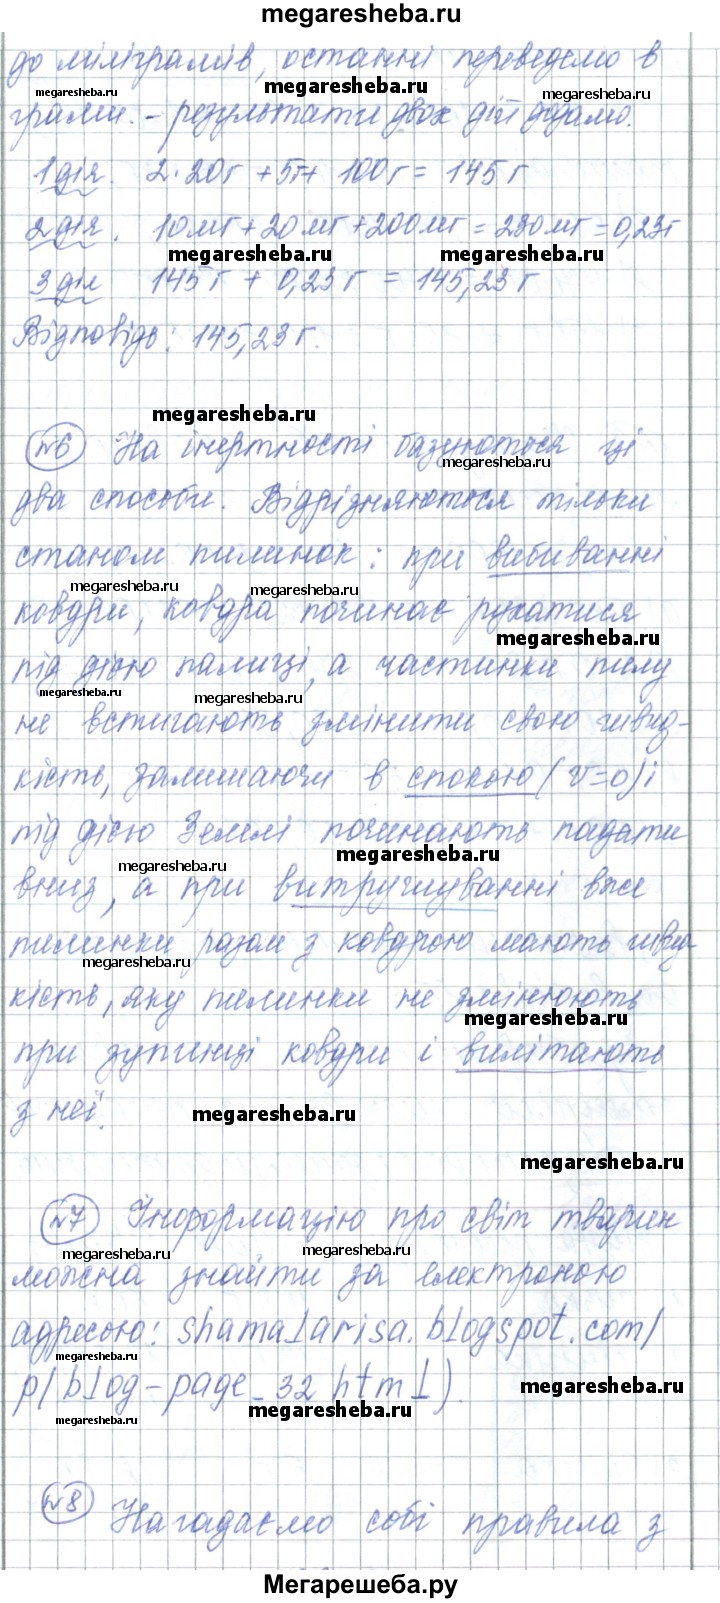 megaresheba.ru
до міліграмів, останні переведемо в
megaresheba.ru megaresheba.ru megaresheba.ru
грами. - результати двох дій додамо.
1 дія. 2·20г + 5г + 100г = 145 г
2 дія. 10мг + 20мг + 200мг = 230мг = 0,23г
megaresheba.ru megaresheba.ru
3 дія 145 г + 0,23 г = 145,23 г
Відповідь: 145,23 г.
megaresheba.ru
№6 На інертності базуються ці
megaresheba.ru
два способи. Відрізняються тільки
станом пилинок: при вибиванні
megaresheba.ru megaresheba.ru
ковдри, ковдра починає рухатися
megaresheba.ru
під дією палиці, а частинки пилу
megaresheba.ru megaresheba.ru
не встигають змінити свою швид-
кість, залишаючи в спокою (v=0) і
під дією Землі починають падати
megaresheba.ru megaresheba.ru
вниз, а при витручшуванні вже
пилинки разом з ковдрою мають швид
megaresheba.ru
кість, яку пилинки не змінюють
megaresheba.ru
при зупинці ковдри і вилітають
з неї.
megaresheba.ru
megaresheba.ru
№7 Інформацію про світ тварин
megaresheba.ru megaresheba.ru
можна знайти за електроною
адресою: shamalarisa.blogspot.com/
megaresheba.ru
p/blog-page_32 html).
megaresheba.ru megaresheba.ru
megaresheba.ru
№8 Нагадаємо собі правила з
Мегарешеба.ру